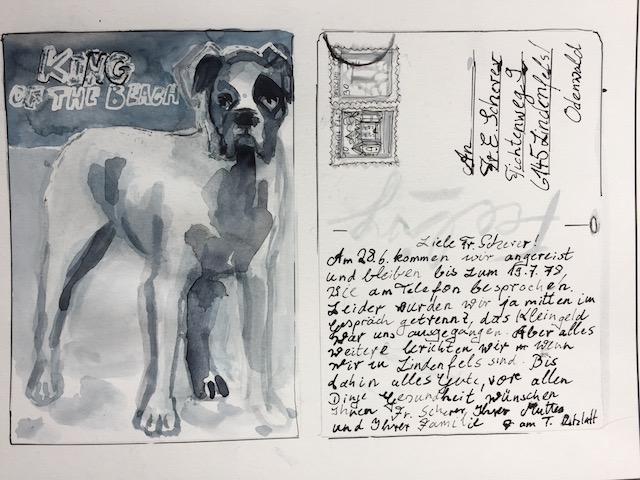 KING
OF THE BEACH
An
Fr. E. Scherer
Fichtenweg 9
6145 Lindenfels/
Odenwald
30
Liebe Fr. Scherer!
Am 28.6. kommen wir angereist
und bleiben bis zum 13.7.79,
wie am Telefon besprochen.
Leider wurden wir ja mitten im
Gespräch getrennt, das Kleingeld
war uns ausgegangen. Aber alles
weitere berichten wir wenn
wir in Lindenfels sind. Bis
dahin alles Gute, vor allen
Dinge Gesundheit wünschen
Ihnen Fr. Scherer, Ihrer Mutter
und Ihrer Familie am T.